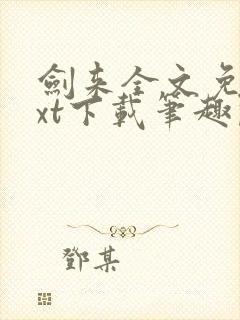 劍来全文免
xt下載筆趣
鄧某